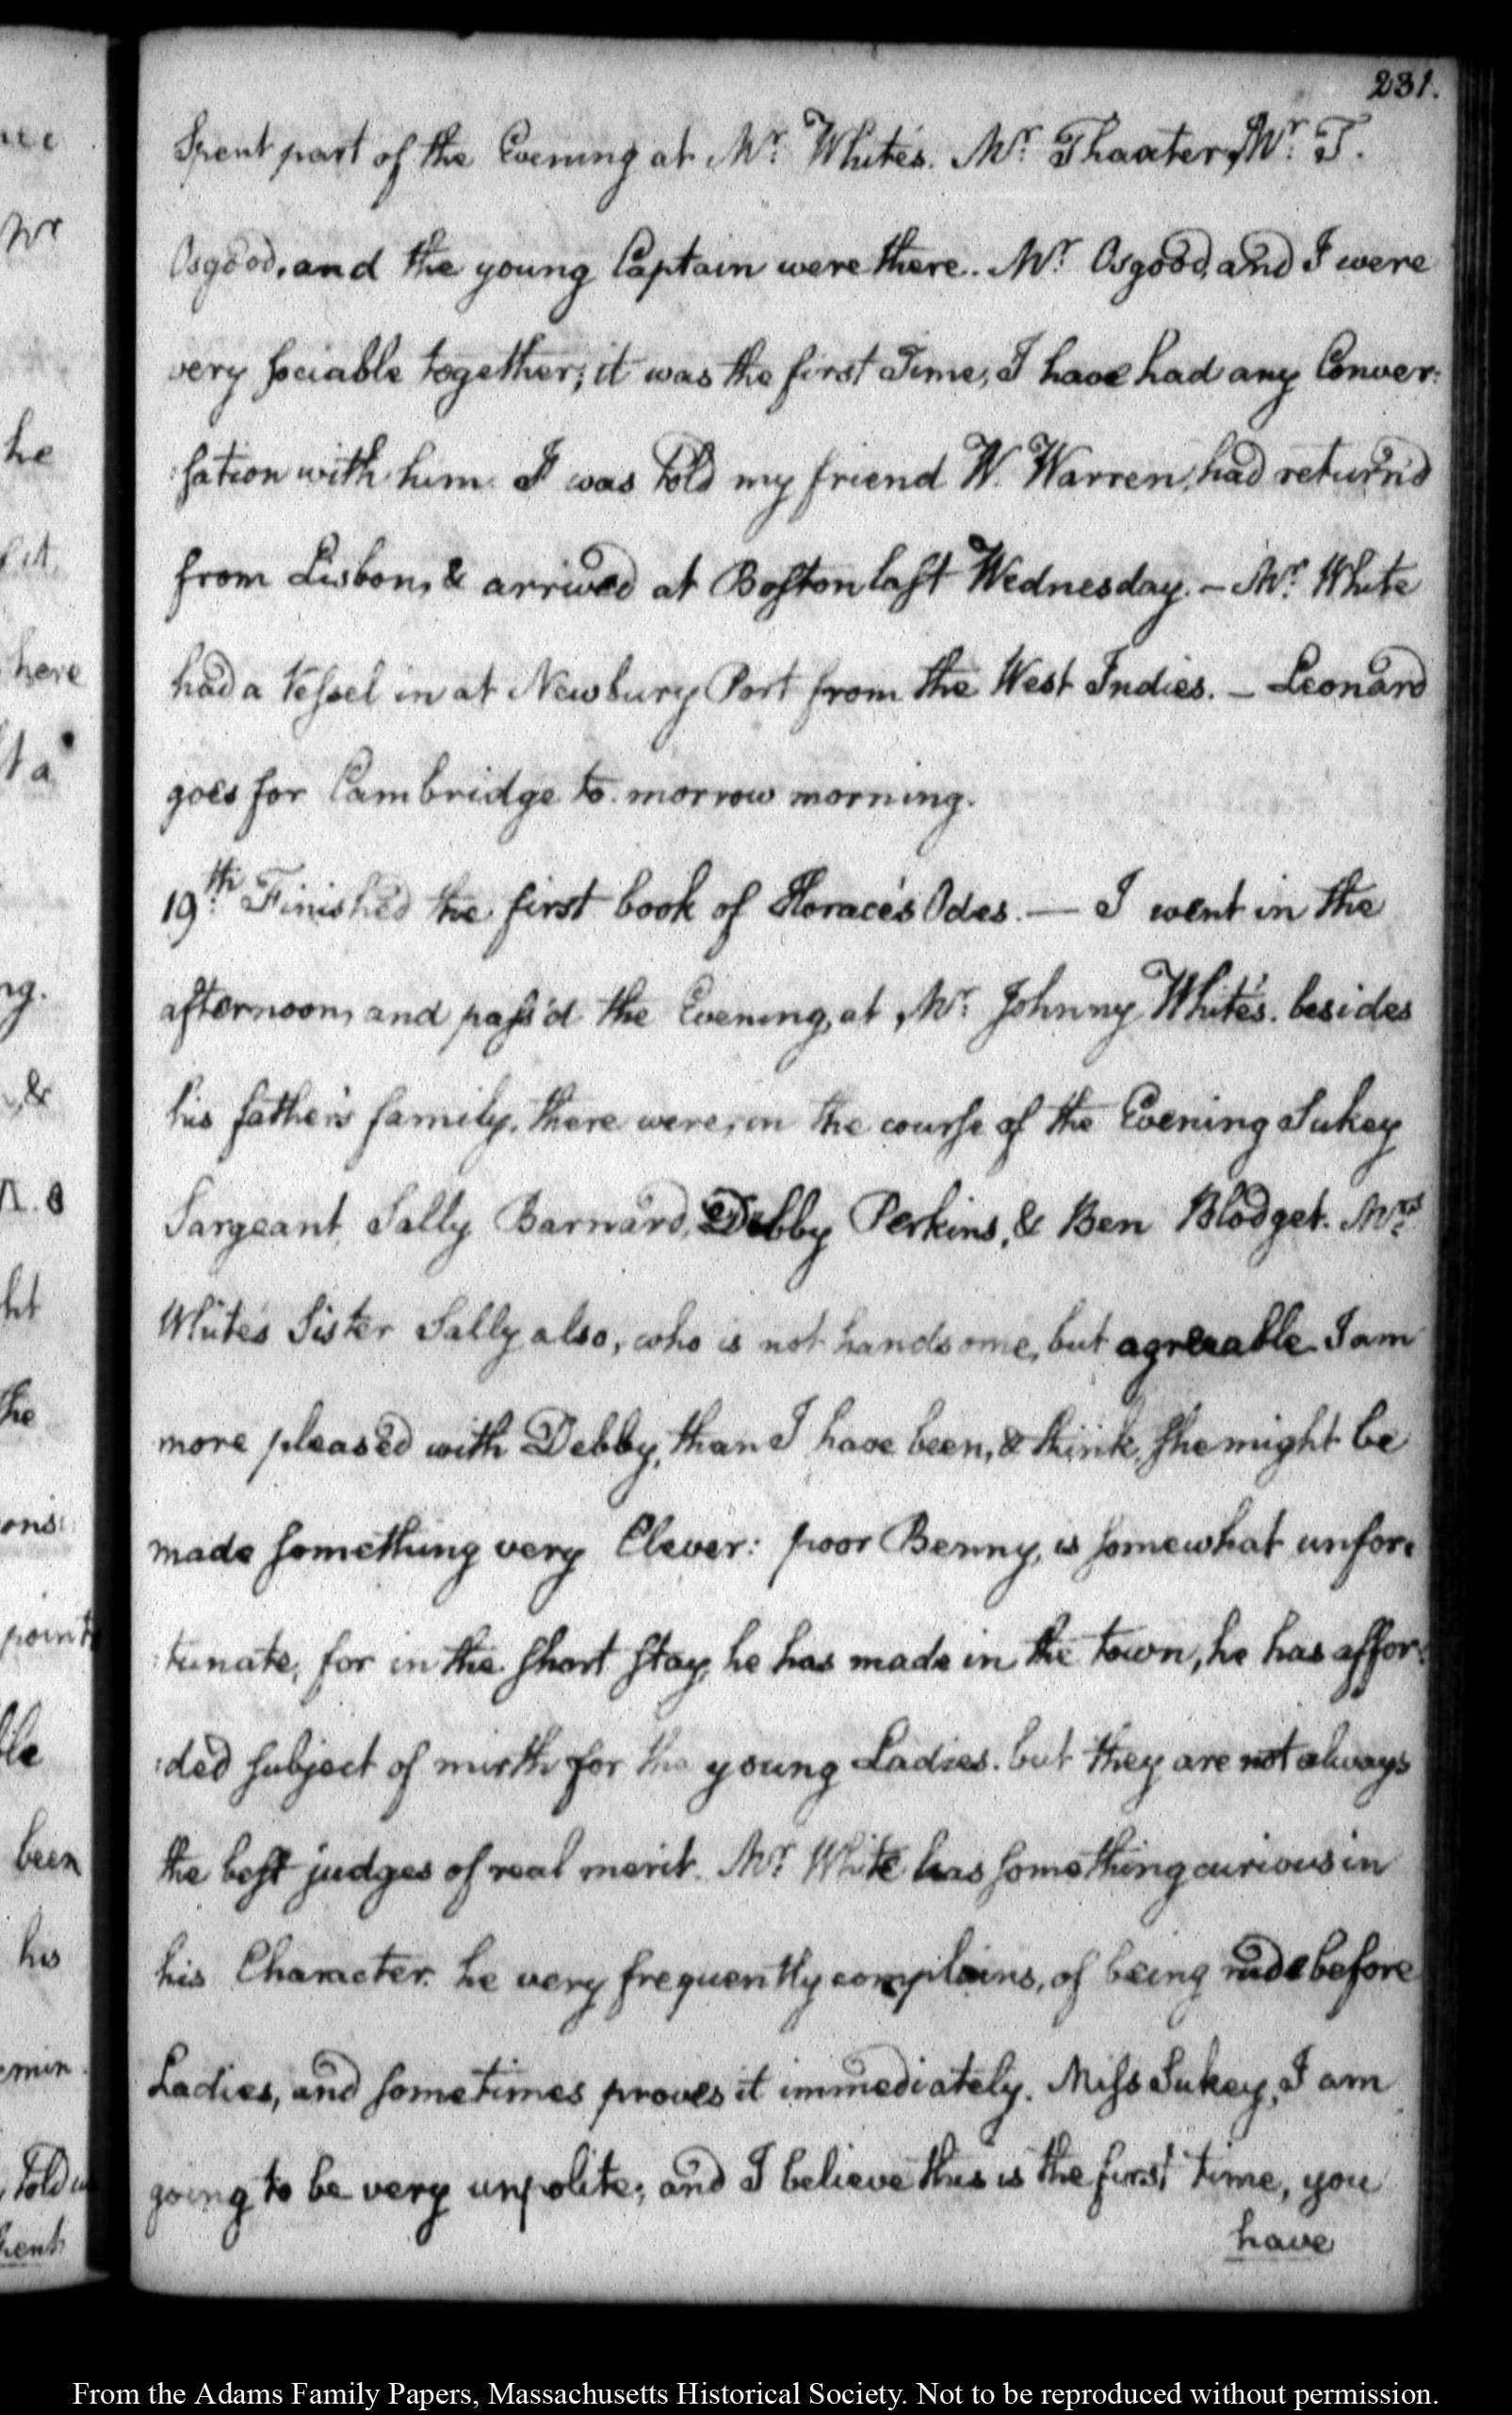 231.
Spent part of the Evening at Mr. White's. Mr. Thaxter, Mr. T.
Osgood, and the young Captain were there. Mr. Osgood, and I were
very sociable together; it was the first Time, I have had any Conver:
:sation with him. I was told my friend W. Warren, had return'd
from Lisbon, & arrived at Boston last Wednesday. — Mr. White
had a Vessel in at Newbury Port from the West Indies. — Leonard
goes for Cambridge to-morrow morning.
19th. Finished the first book of Horace's Odes. — I went in the
afternoon, and pass'd the Evening, at Mr. Johnny White's. besides
his father's family, there were, in the course of the Evening Sukey
Sargeant, Sally Barnard, Debby Perkins, & Ben Blodget. Mrs.
White's Sister Sally also, who is not handsome, but agreeable. I am
more pleased with Debby, than I have been, & think, she might be
made something very Clever: poor Benny, is somewhat unfor:
:tunate, for in the short stay, he has made in the town, he has affor:
:ded subject of mirth for the young Ladies. but they are not always
the best judges of real merit. Mr. White has something curious in
his Character. he very frequently complains, of being rude before
Ladies, and sometimes proves it immediately. Miss Sukey, I am
going to be very unpolite; and I believe this is the first time, you
have
From the Adams Family Papers, Massachusetts Historical Society. Not to be reproduced without permission.